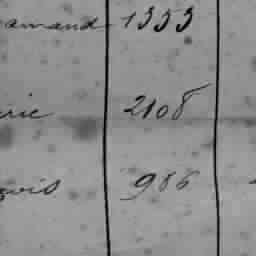 amand 1353
rie 2108
wis 986